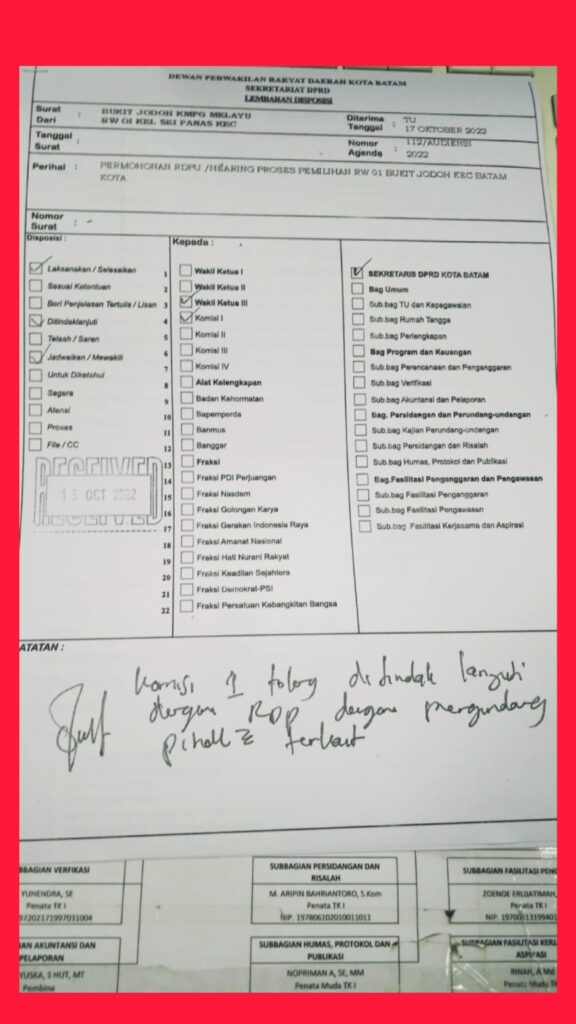 DEWAN PERWAKILAN RAKYAT DAERAH KOTA BATAM
SEKRETARIAT DPRD
LEMBARAN DISPOSISI
Surat Dari : BUKIT JODOH KMPG MELAYU RW 01 KEL SEI PANAS KEC
Diterima Tanggal : TU 17 OKTOBER 2022
Tanggal Surat :
Nomor Agenda : 112/AUDIENSI 2022
Perihal : PERMOHONAN RDPU /HEARING PROSES PEMILIHAN RW 01 BUKIT JODOH KEC BATAM
KOTA
Nomor Surat : -
Disposisi :
Laksanakan / Selesaikan
Sesuai Ketentuan
Beri Penjelasan Tertulis / Lisan
Ditindaklanjuti
Telaah / Saran
Jadwalkan / Mewakili
Untuk Diketahui
Segera
Atensi
Proses
File / CC
RECEIVED
OCT 2022
RECEIVED
Kepada :
1 Wakil Ketua I
2 Wakil Ketua II
3 Wakil Ketua III
4 Komisi I
5 Komisi II
6 Komisi III
7 Komisi IV
8 Alat Kelengkapan
9 Badan Kehormatan
10 Bapemperda
11 Banmus
12 Banggar
13 Fraksi
14 Fraksi PDI Perjuangan
15 Fraksi Nasdem
16 Fraksi Golongan Karya
17 Fraksi Gerakan Indonesia Raya
18 Fraksi Amanat Nasional
19 Fraksi Hati Nurani Rakyat
20 Fraksi Keadilan Sejahtera
21 Fraksi Demokrat-PSI
22 Fraksi Persatuan Kebangkitan Bangsa
SEKRETARIS DPRD KOTA BATAM
Bag Umum
Sub.bag TU dan Kepegawaian
Sub.bag Rumah Tangga
Sub.bag Perlengkapan
Bag Program dan Keuangan
Sub.bag Perencanaan dan Penganggaran
Sub.bag Verifikasi
Sub.bag Akuntansi dan Pelaporan
Bag. Persidangan dan Perundang-undangan
Sub.bag Kajian Perundang-undangan
Sub.bag Persidangan dan Risalah
Sub.bag Humas, Protokol dan Publikasi
Bag.Fasilitasi Penganggaran dan Pengawasan
Sub.bag Fasilitasi Penganggaran
Sub.bag Fasilitasi Pengawasan
Sub.bag Fasilitasi Kerjasama dan Aspirasi
ATATAN :
Komisi 1 tolong ditindak lanjuti
dengan RDP dengan mengundang
pihak2 terkait
BBAGIAN VERFIKASI
YUHENDRA, SE
Penata TK I
97202171997031004
SUBBAGIAN PERSIDANGAN DAN
RISALAH
M. ARIPIN BAHRIANTORO, S.Kom
Penata TK I
NIP. 197806102010011011
SUBBAGIAN FASILITASI PENG
Penata TK I
AN AKUNTANSI DAN
PELAPORAN
YUSKA, S HUT, MT
Pembina
SUBBAGIAN HUMAS, PROTOKOL DAN
PUBLIKASI
NOPRIMAN A, SE, MM
Penata Muda TK I
SUBBAGIAN FASILITASI KERJ
ASPIRASI
RINAH, A Md
Penata Muda TK